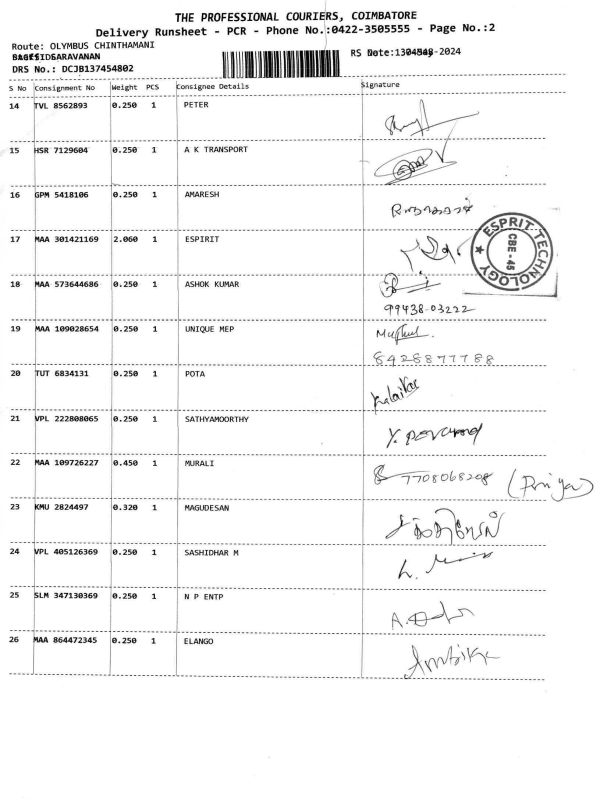 THE PROFESSIONAL COURIERS, COIMBATORE
Delivery Runsheet - PCR - Phone No.:0422-3505555 - Page No.:2
Route: OLYMBUS CHINTHAMANI
SARAVANAN
RS Date: -2024
DRS No.: DCJB137454802
S No Consignment No Weight PCS Consignee Details Signature
14 TVL 8562893 0.250 1 PETER
15 HSR 7129604 0.250 1 A K TRANSPORT
16 GPM 5418106 0.250 1 AMARESH
17 MAA 301421169 2.060 1 ESPIRIT
ESPRIT TECHNOLOGY CBE - 45
18 MAA 573644686 0.250 1 ASHOK KUMAR
99438-03222
19 MAA 109028654 0.250 1 UNIQUE MEP
8428877788
20 TUT 6834131 0.250 1 POTA
21 VPL 222808065 0.250 1 SATHYAMOORTHY
22 MAA 109726227 0.450 1 MURALI 7708068208 (Priya)
23 KMU 2824497 0.320 1 MAGUDESAN
24 VPL 405126369 0.250 1 SASHIDHAR M
25 SLM 347130369 0.250 1 N P ENTP
26 MAA 864472345 0.250 1 ELANGO